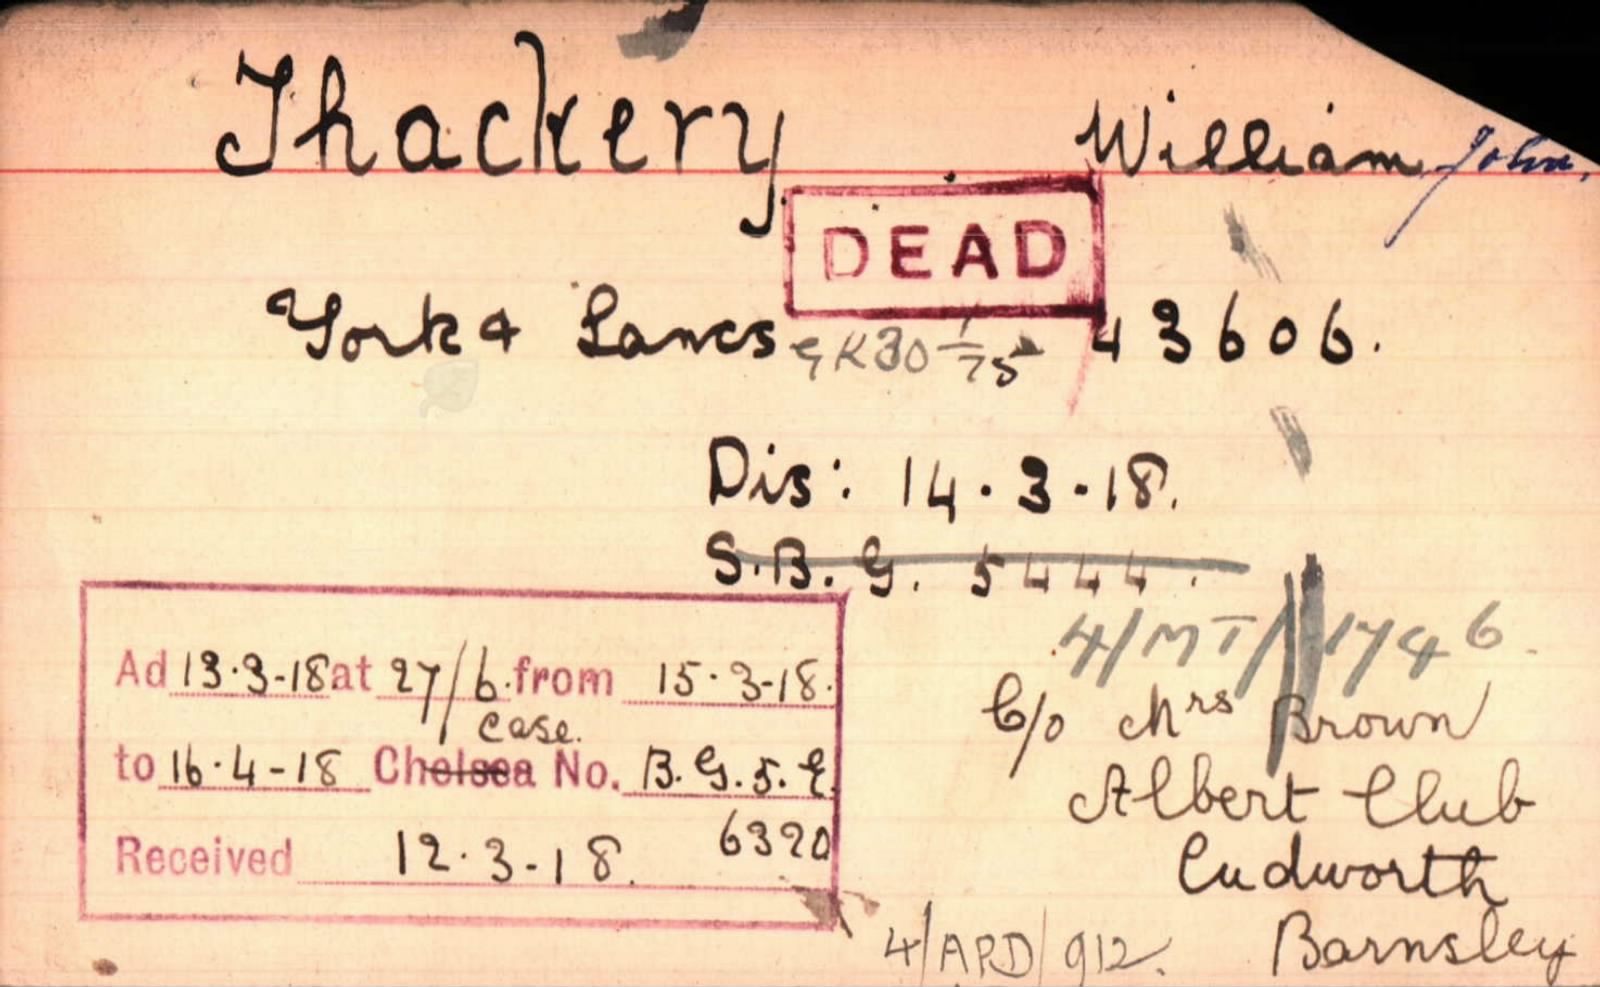 Thackery William John.
DEAD
York & Lancs 43606.
Dis: 14.3.18.
S.B.G. 5444.
4/MT/1746
Ad 13.3-18 at 27/6. from 15.3-18.
case.
to 16.4-18 Chelsea No. B.G.5.E.
6320
Received 12.3-18.
C/o Mrs Brown
Albert Club
Cudworth
Barnsley
4/APD/912.